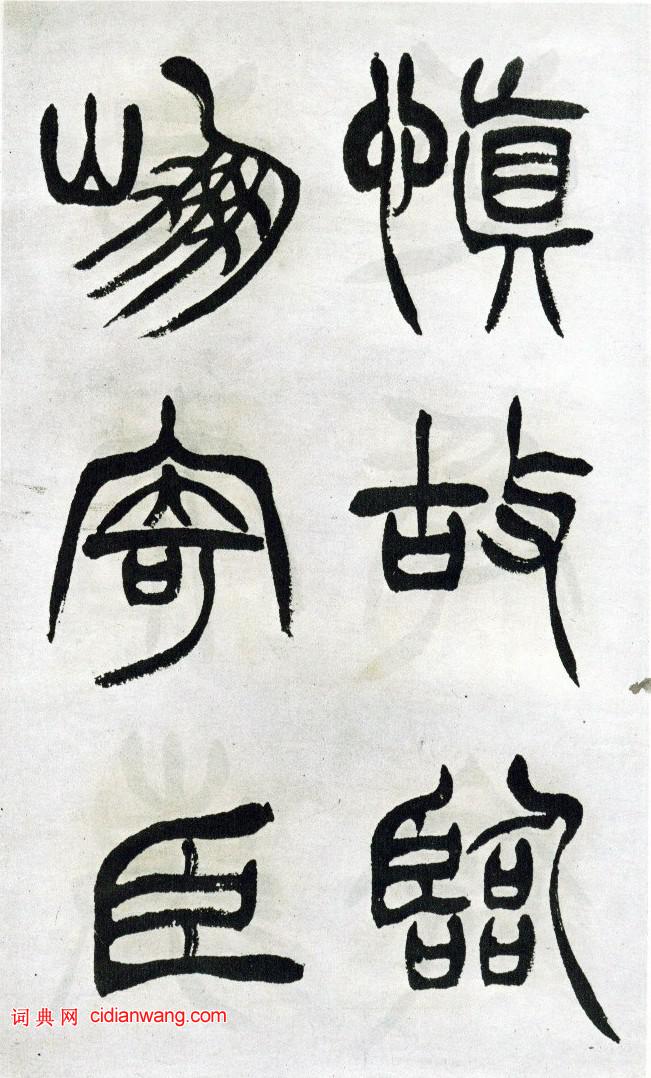 慎故臨
崩寄臣
词典网 cidianwang.com